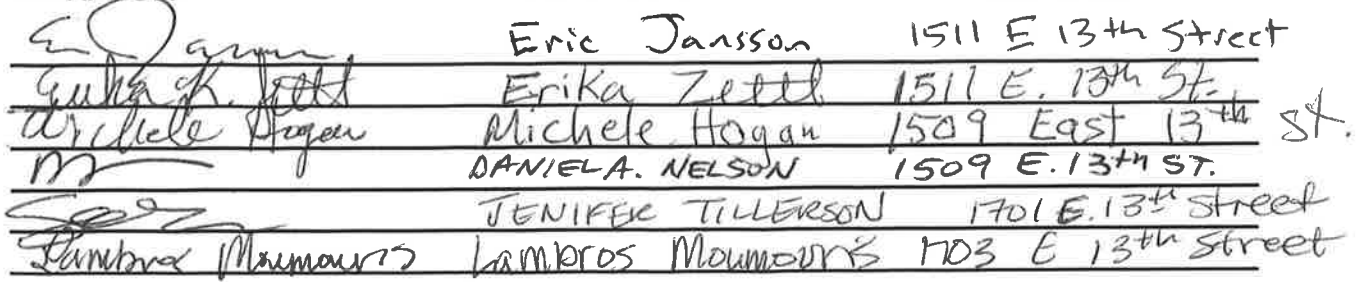 Eric Jansson 1511 E 13th Street
Erika K. Zettl Erika Zettl 1511 E. 13th St.
Michele Hogan Michele Hogan 1509 East 13th St.
DANIEL A. NELSON 1509 E. 13th ST.
JENIFER TILLERSON 1701 E. 13th Street
Lambros Moumouris Lambros Moumouris 1703 E 13th Street